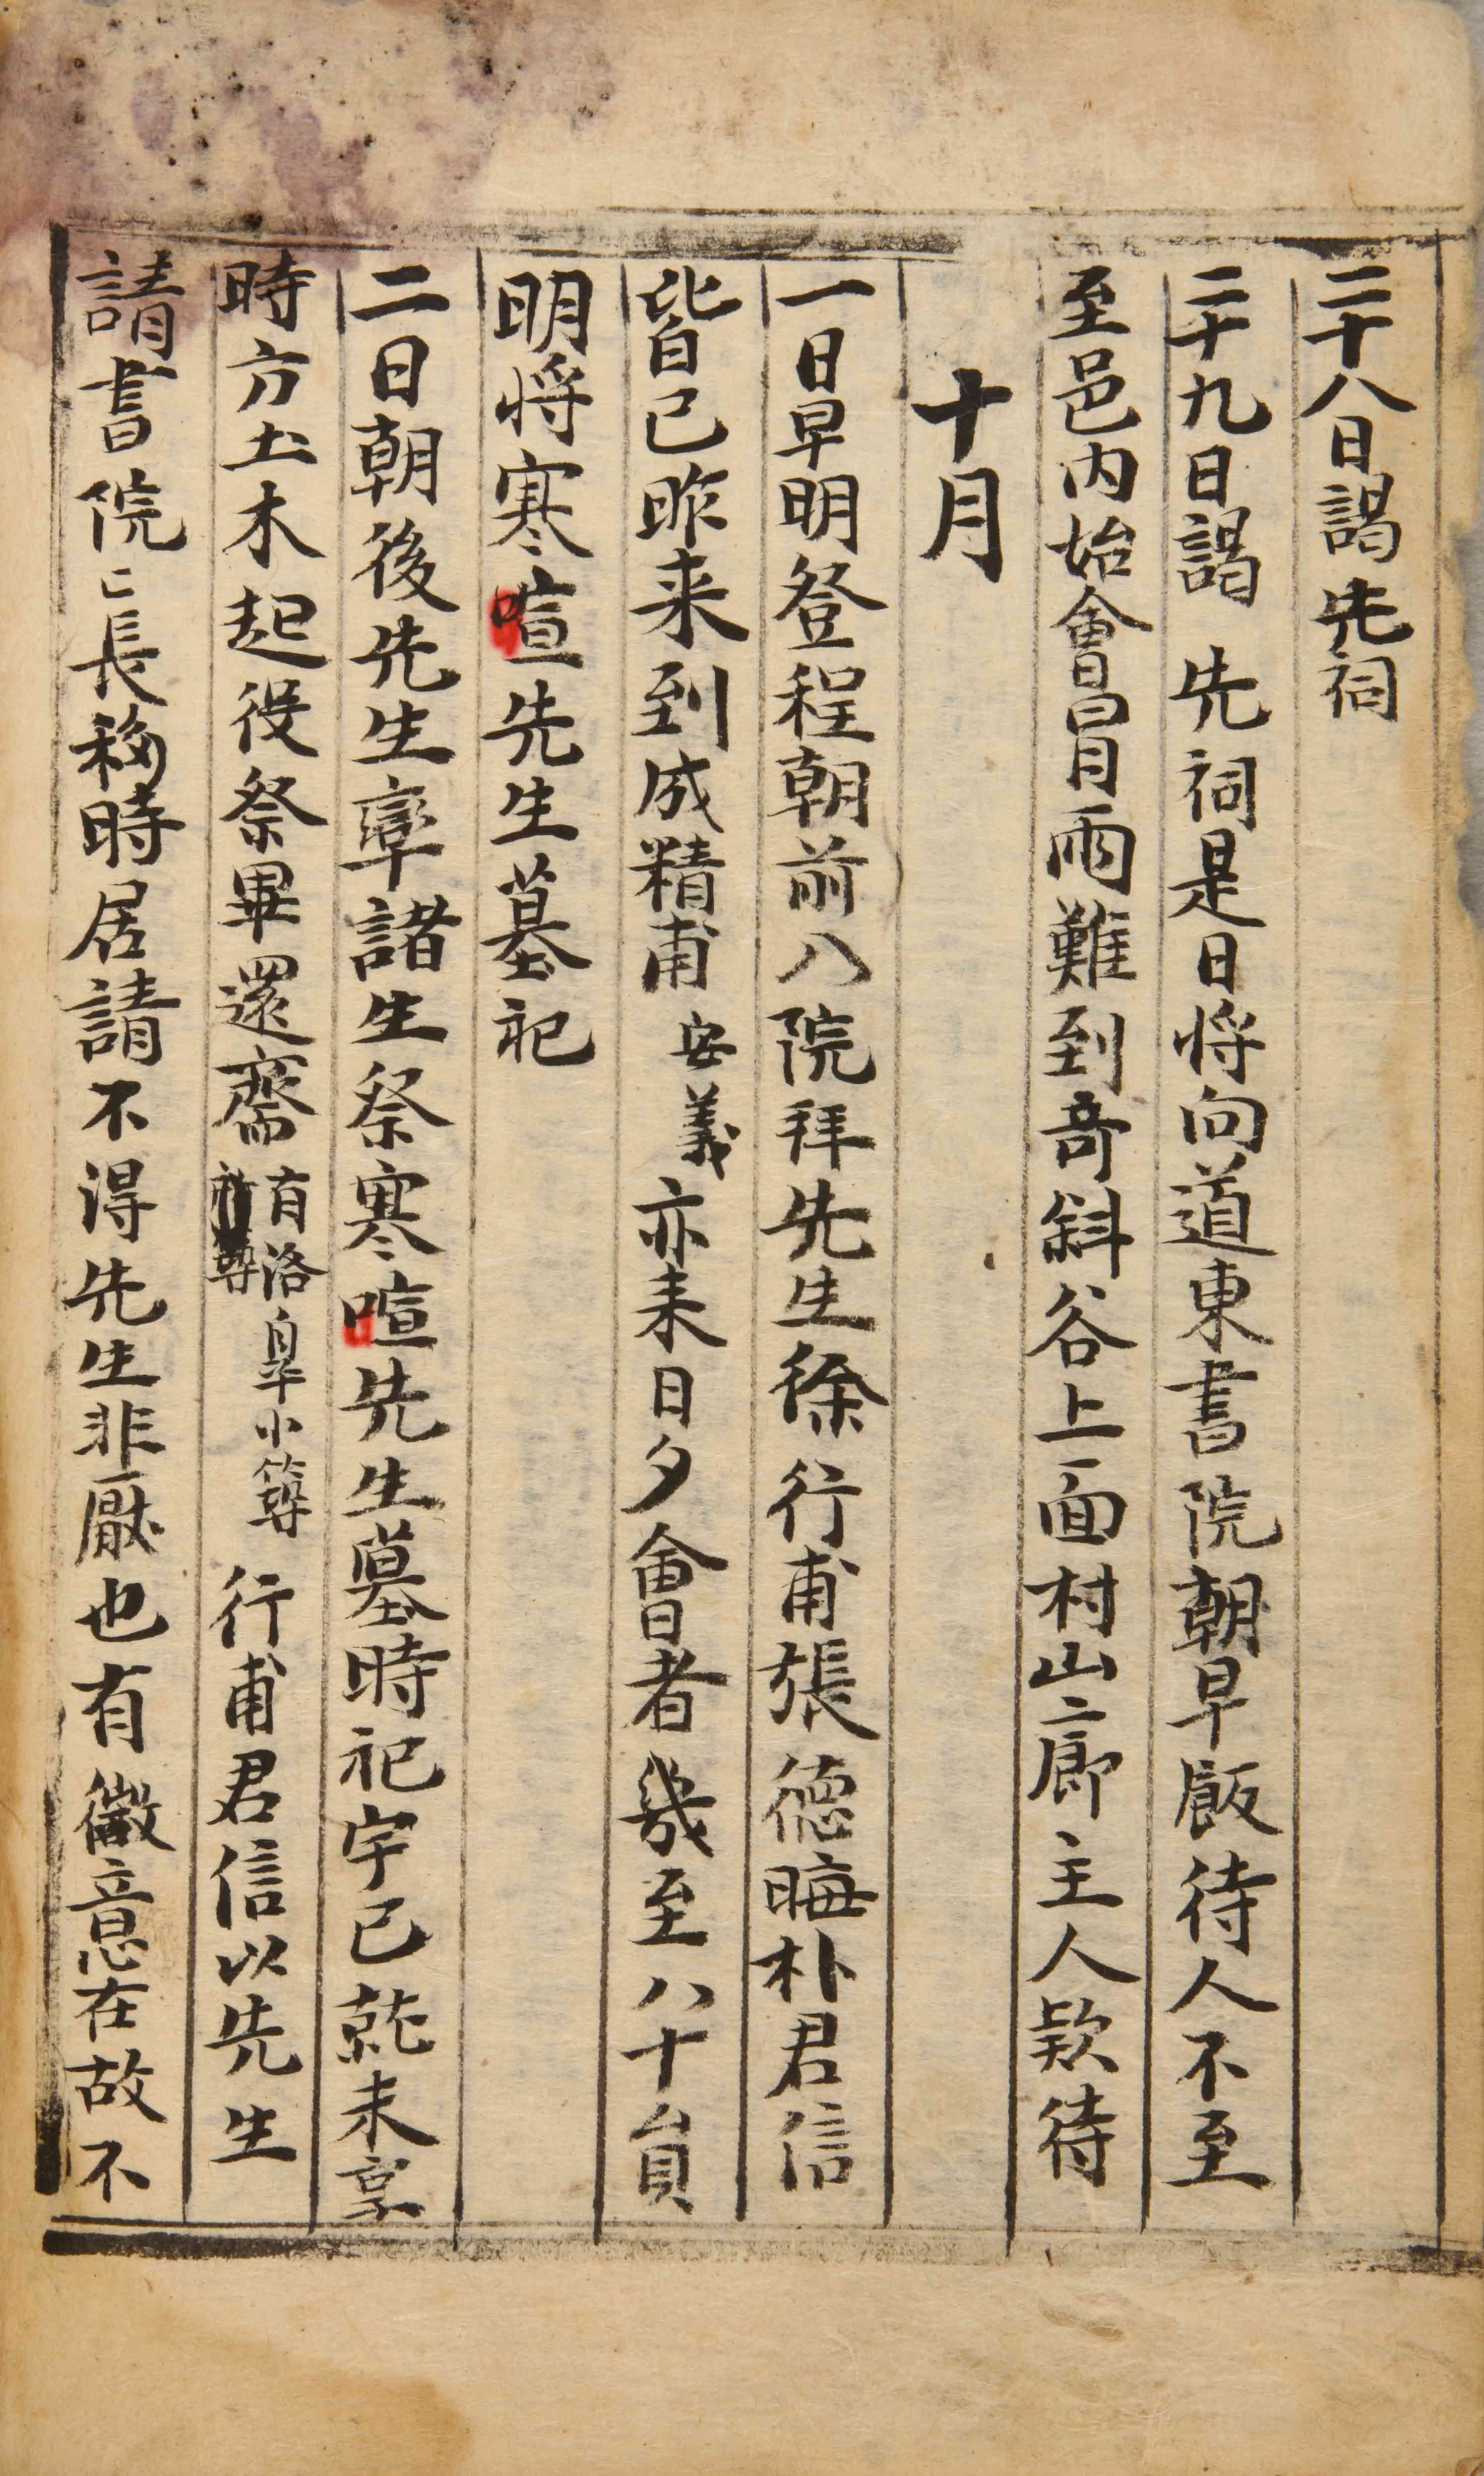 二十八日謁先祠
二十九日謁 先祠是日将向道東書院朝早飯待人不至
至邑内始會冒雨難到奇斜谷上面村山廊主人欵待
十月
一日早明登程朝前入院拜先生徐行甫張德晦朴君信
皆已昨来到成精甫安義亦来日夕會者幾至八十員
明将寒喧先生墓祀
二日朝後先生率諸生祭寒喧先生墓時祀宇已就未享
時方土木起役祭畢還齋有洛皐小䔿行甫君信以先生
請書院〻長移時居請不得先生非厭也有微意在故不